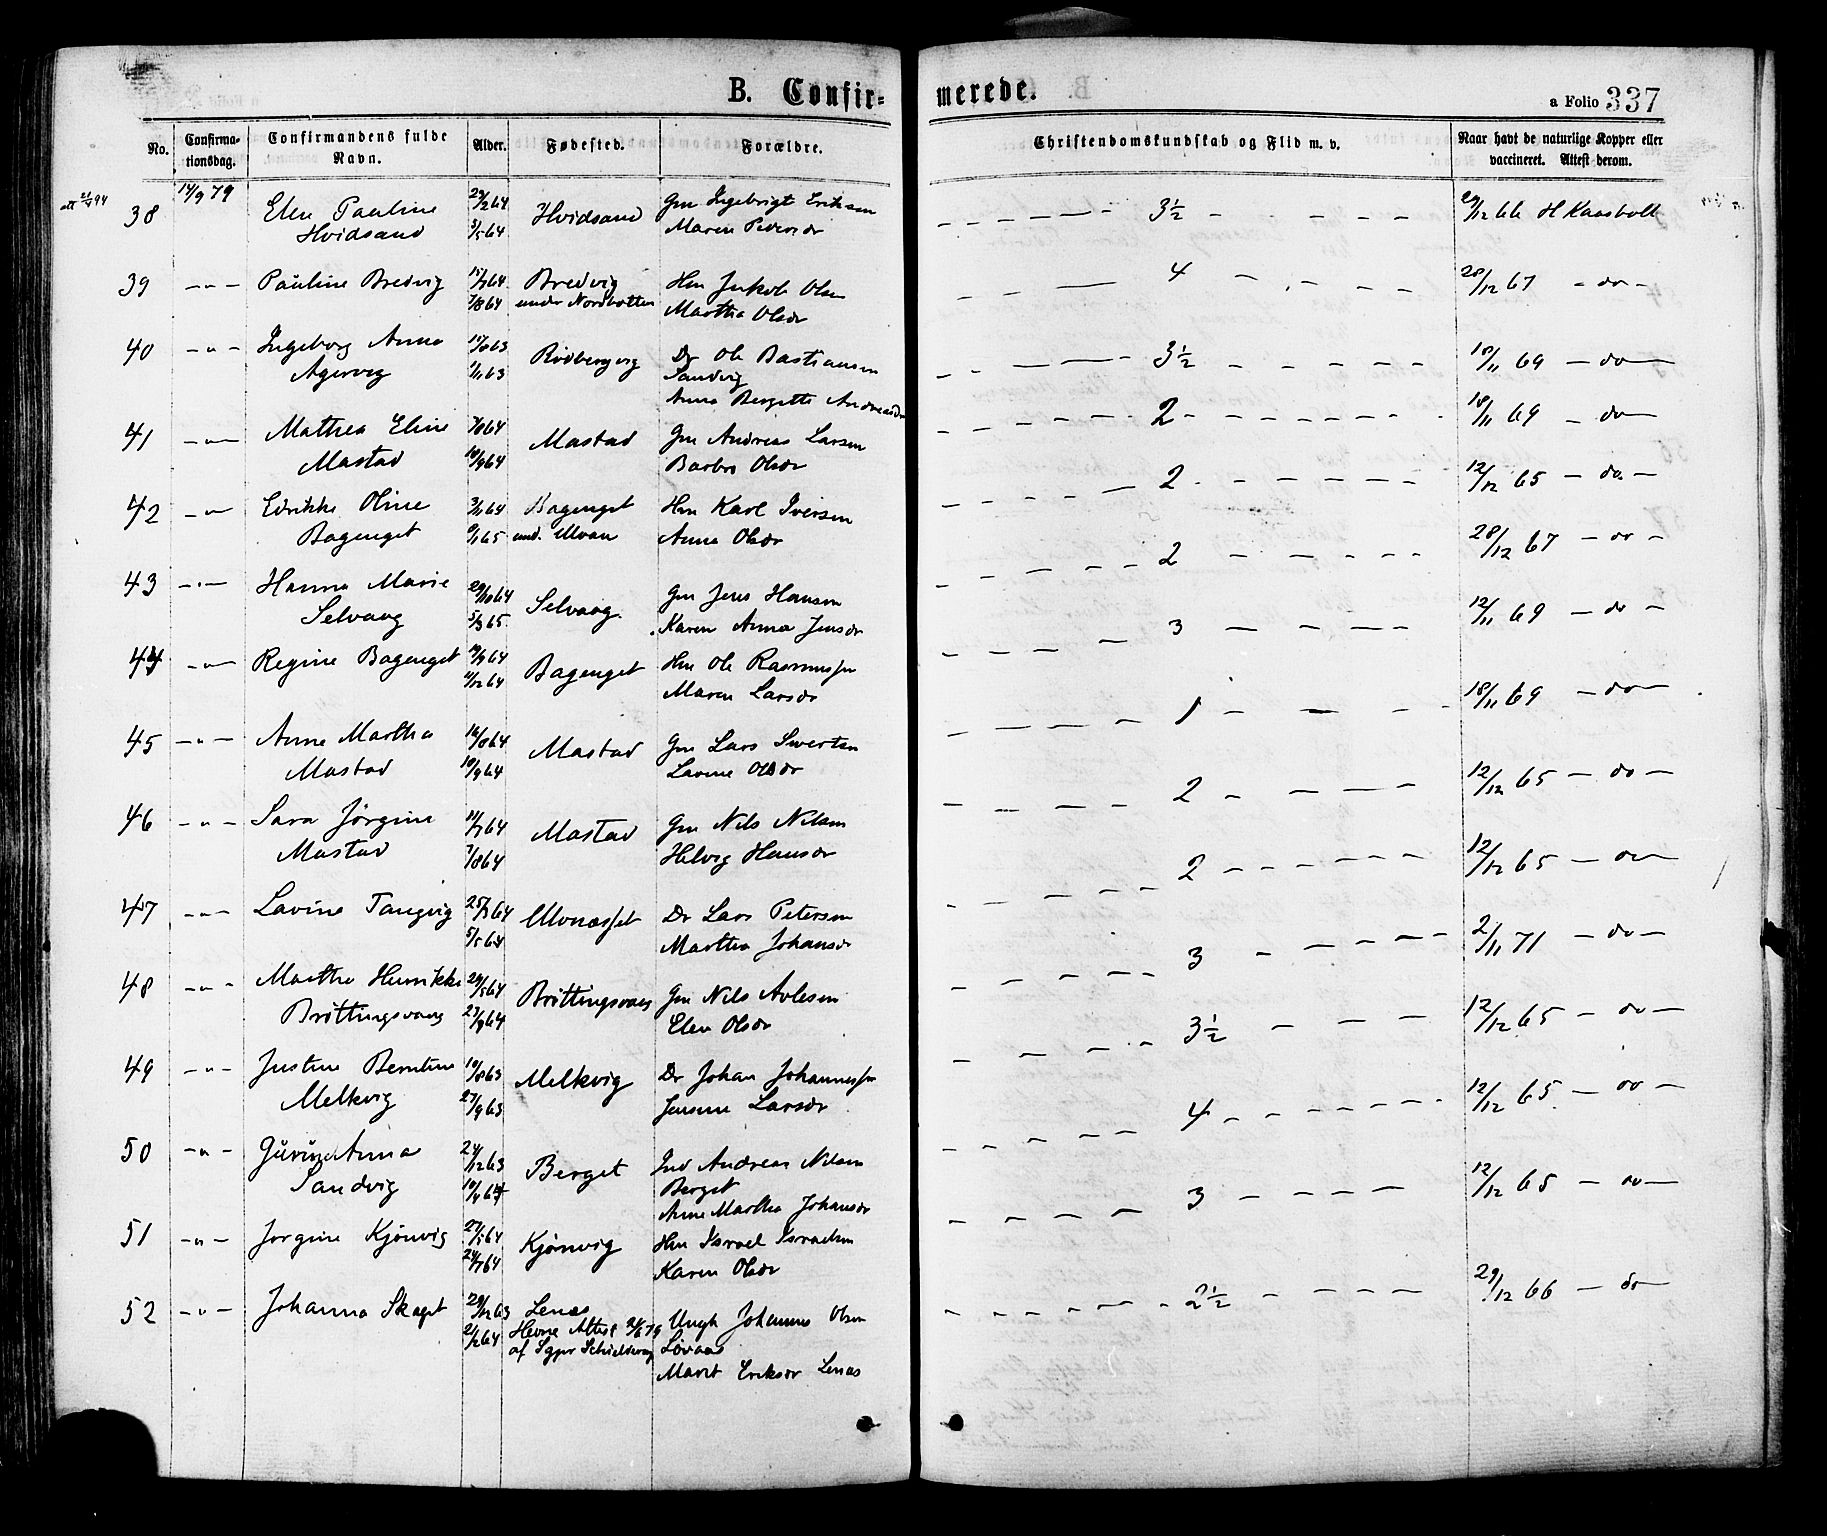 B. Confir-
merede.
a Folio 337
No.
Confirma-
tionsdag.
Confirmandens fulde
Navn.
Alder.
Fødested.
Forældre.
Christendomskundskab og Flid m. v.
Naar havt de naturlige Kopper eller
vaccineret. Attest derom.
38 14/9 79 Elen Pauline Hvidsand Gm Ingebrigt Eriksen 3½ 29/12 66 H Kaasbøll
Hvidsand 3/5 64 Maren Pedersdr
39 - " - Pauline Bredvig Bredvig Hm Jakob Olsen 4 28/12 67 - do -
7/8 64 under Nordbotten Martha Olsdr
40 - " - Ingeborg Anna Rødbergvig Dr Ole Bastiansen 3½ 18/11 69 - do -
Agervig 1/11 63 Sandvig
Anna Bergitte Andreasdr
41 - " - Mathea Eline 7/8 64 Mastad Gm Andreas Larsen 2 18/11 69 - do -
Mastad 18/9 64 Barbro Olsdr
42 - " - Edrikke Oline 3/11 64 Bagenget Hm Karl Iversen 2 12/12 65 - do -
Bagenget 8/1 65 und. Ulvan Anna Olsdr
43 - " - Hanna Marie 29/10 64 Selvaag Gm Jens Hansen 2 28/12 67 - do -
Selvaag 5/3 65 Karen Anna Jensdr
44 - " - Regine Bagenget Bagenget Hm Ole Rasmussen 3 12/11 69 - do -
11/12 64 Maren Larsdr
45 - " - Anne Martha 16/8 64 Mastad Gm Lars Sivertsen 1 18/11 69 - do -
Mastad 18/9 64 Lavine Olsdr
46 - " - Sara Jørgine 11/7 64 Mastad Gm Nils Nilsen 2 12/12 65 - do -
Mastad 7/8 64 Helvig Hansdr
47 - " - Lavine Tangvig 25/3 64 Ulvnesset Dr Lars Petersen 2 12/12 65 - do -
5/5 64 Martha Johansdr
48 - " - Martha Henrikke Brøttingsvaag Gm Nils Avlesen 3 2/11 71 - do -
Brøttingsvaag Elen Olsdr
49 - " - Justine Berntine 10/8 63 Melkvig Dr Johan Johannessen 3½ 12/12 65 - do -
Melkvig 27/9 63 Jensine Larsdr
50 - " - Gurine Anna 24/12 63 Berget Ind Andreas Nilsen 4 12/12 65 - do -
Sandvig 10/4 64 Berget
Anne Martha Johansdr
51 - " - Jørgine Kjønvig 27/5 64 Kjønvig Hm Israel Israelsen 3 12/12 65 - do -
24/7 64 Karen Olsdr
52 - " - Johanna Skaget 29/12 63 Lenæs Ungk Johannes Olsen 2½ 29/12 66 - do -
21/2 64 Hevne Attest Løvaas
af Sgpr Marit Eriksdr Lenæs